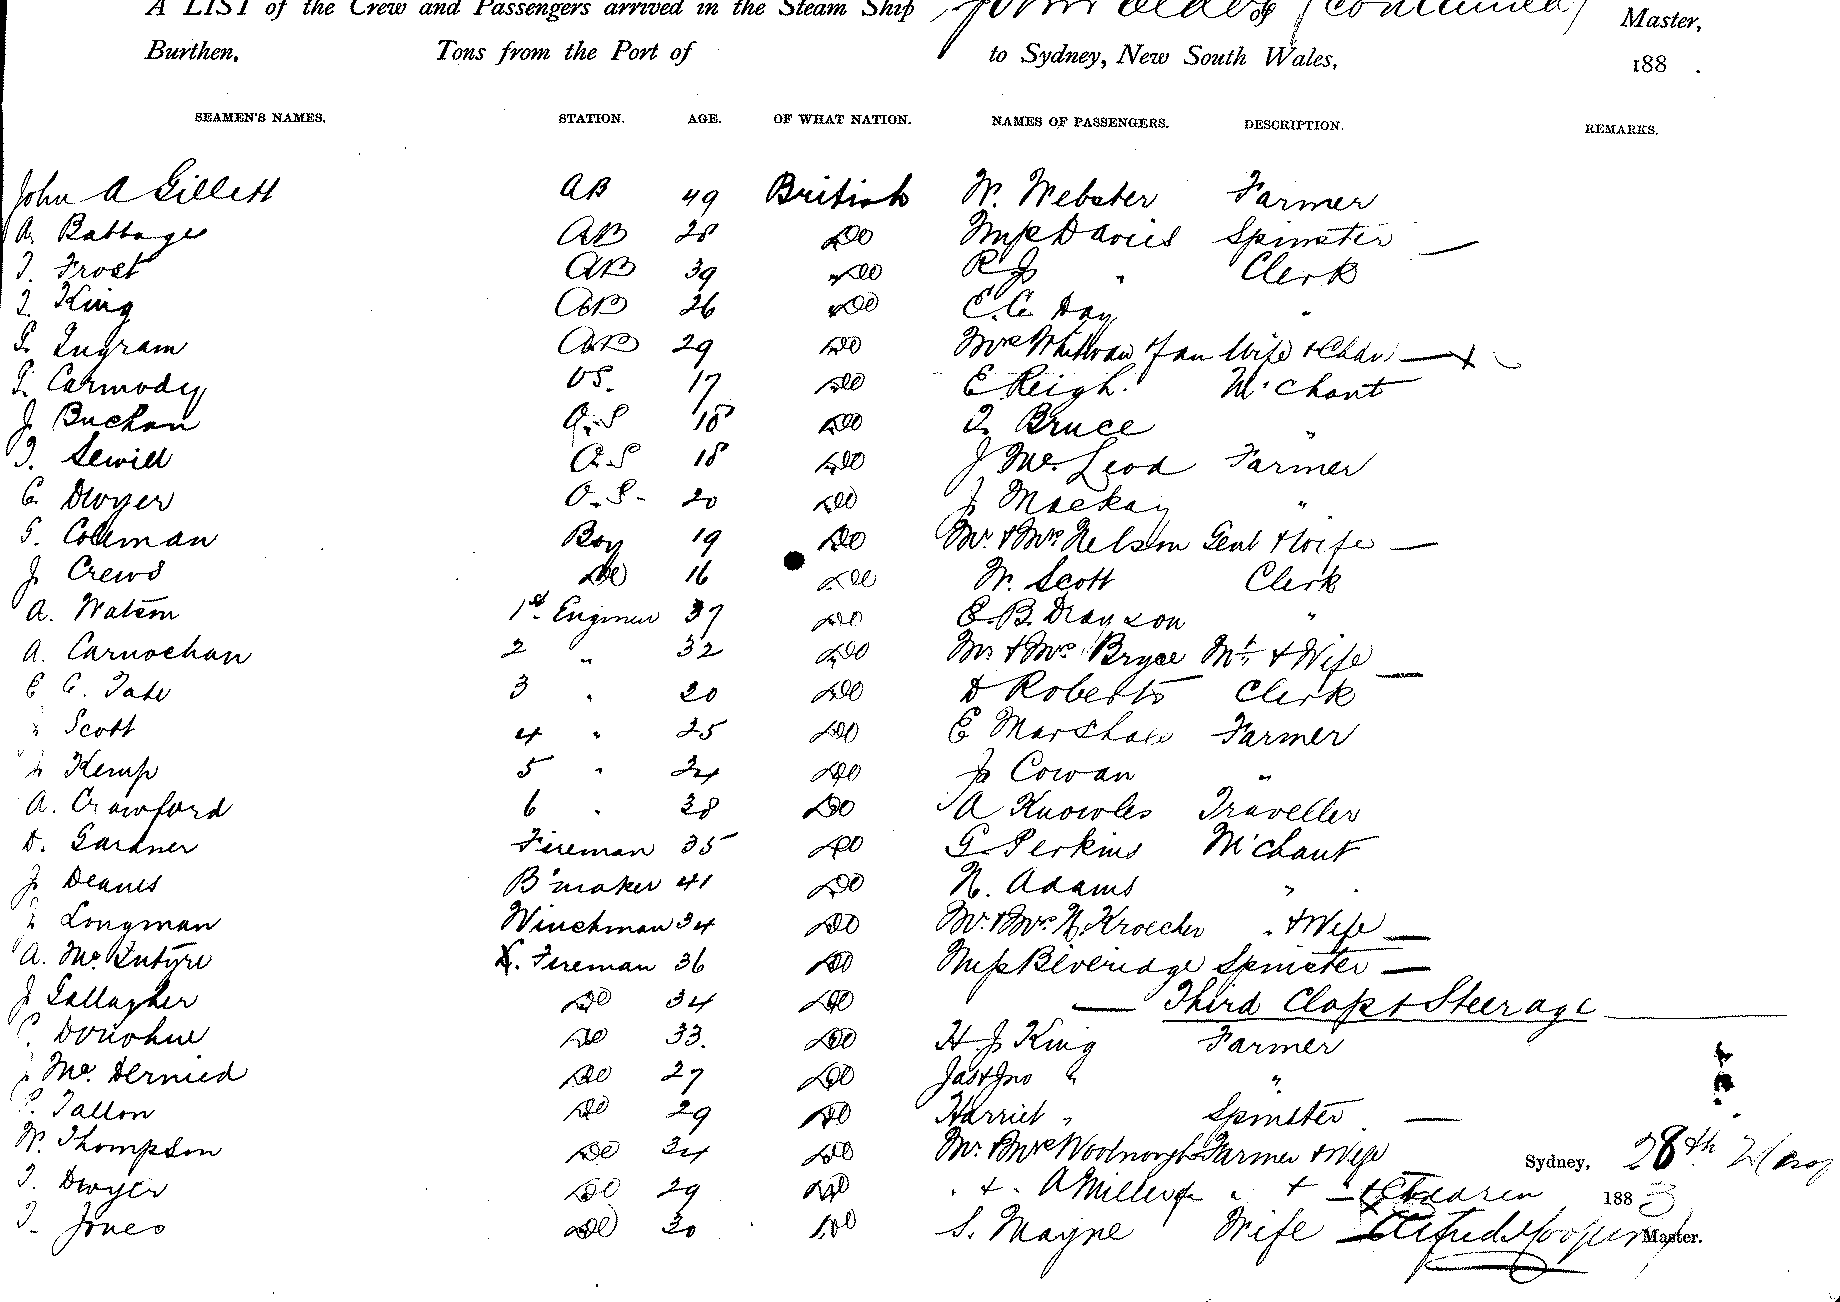 A LIST of the Crew and Passengers arrived in the Steam Ship John Elder (continued) Master,
Burthen, Tons from the Port of to Sydney, New South Wales, 188 .
SEAMEN'S NAMES. STATION. AGE. OF WHAT NATION. NAMES OF PASSENGERS. DESCRIPTION. REMARKS.
John A Gillett AB 49 British W. Webster Farmer
A. Babbage AB 28 Do Miss Davies Spinster —
T. Frost AB 39 Do R J " Clerk
T. King AB 26 Do E. C. Day "
Ingram AB 29 Do Mrs Whitman & fam Wife & Chdn —
Carmody OS. 17 Do E Reigh. M'chant
J Buchan O.S 18 Do T. Bruce "
T. Sewill O.S 18 Do J McLeod Farmer
C. Dwyer O.S. 20 Do J Mackay "
Coleman Boy 19 Do Mr. & Mrs Nelson Gent & Wife —
J Crews Do 16 Do W. Scott Clerk
A. Watson 1st. Engineer 37 Do E. B. Drayson "
A. Carnochan 2 " 32 Do Mr & Mrs Bryce Mt. & Wife —
E C. Tate 3 " 20 Do D Roberts Clerk
" Scott 4 " 25 Do E Marshall Farmer
Kemp 5 " 24 Do J Cowan "
A. Crawford 6 " 28 Do A Knowles Traveller
D. Gardner Fireman 35 Do G Perkins M'chant
J. Deans B'maker 41 Do N. Adams "
Longman Winchman 34 Do Mr. & Mrs. N. Kroecher " & Wife —
A. McIntyre Fireman 36 Do Miss Beveridge Spinster —
J Gallagher Do 34 Do — Third Class & Steerage
Donohue Do 33. Do H J King Farmer
McDermid Do 27 Do Jas & Jno " "
P. Tallon Do 29 Do Harriet " Spinster —
W. Thompson Do 24 Do Mr. & Mrs Woolnough Farmer & Wife Sydney, 28th May
T. Dwyer Do 29 Do " & " A Miller " & " & Children 1883
T. Jones Do 30 Do S. Mayne Wife — Master.